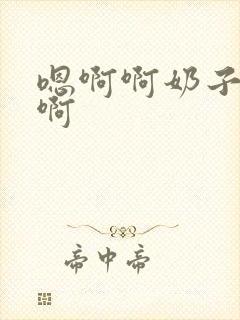 嗯啊啊奶子
啊
帝中帝